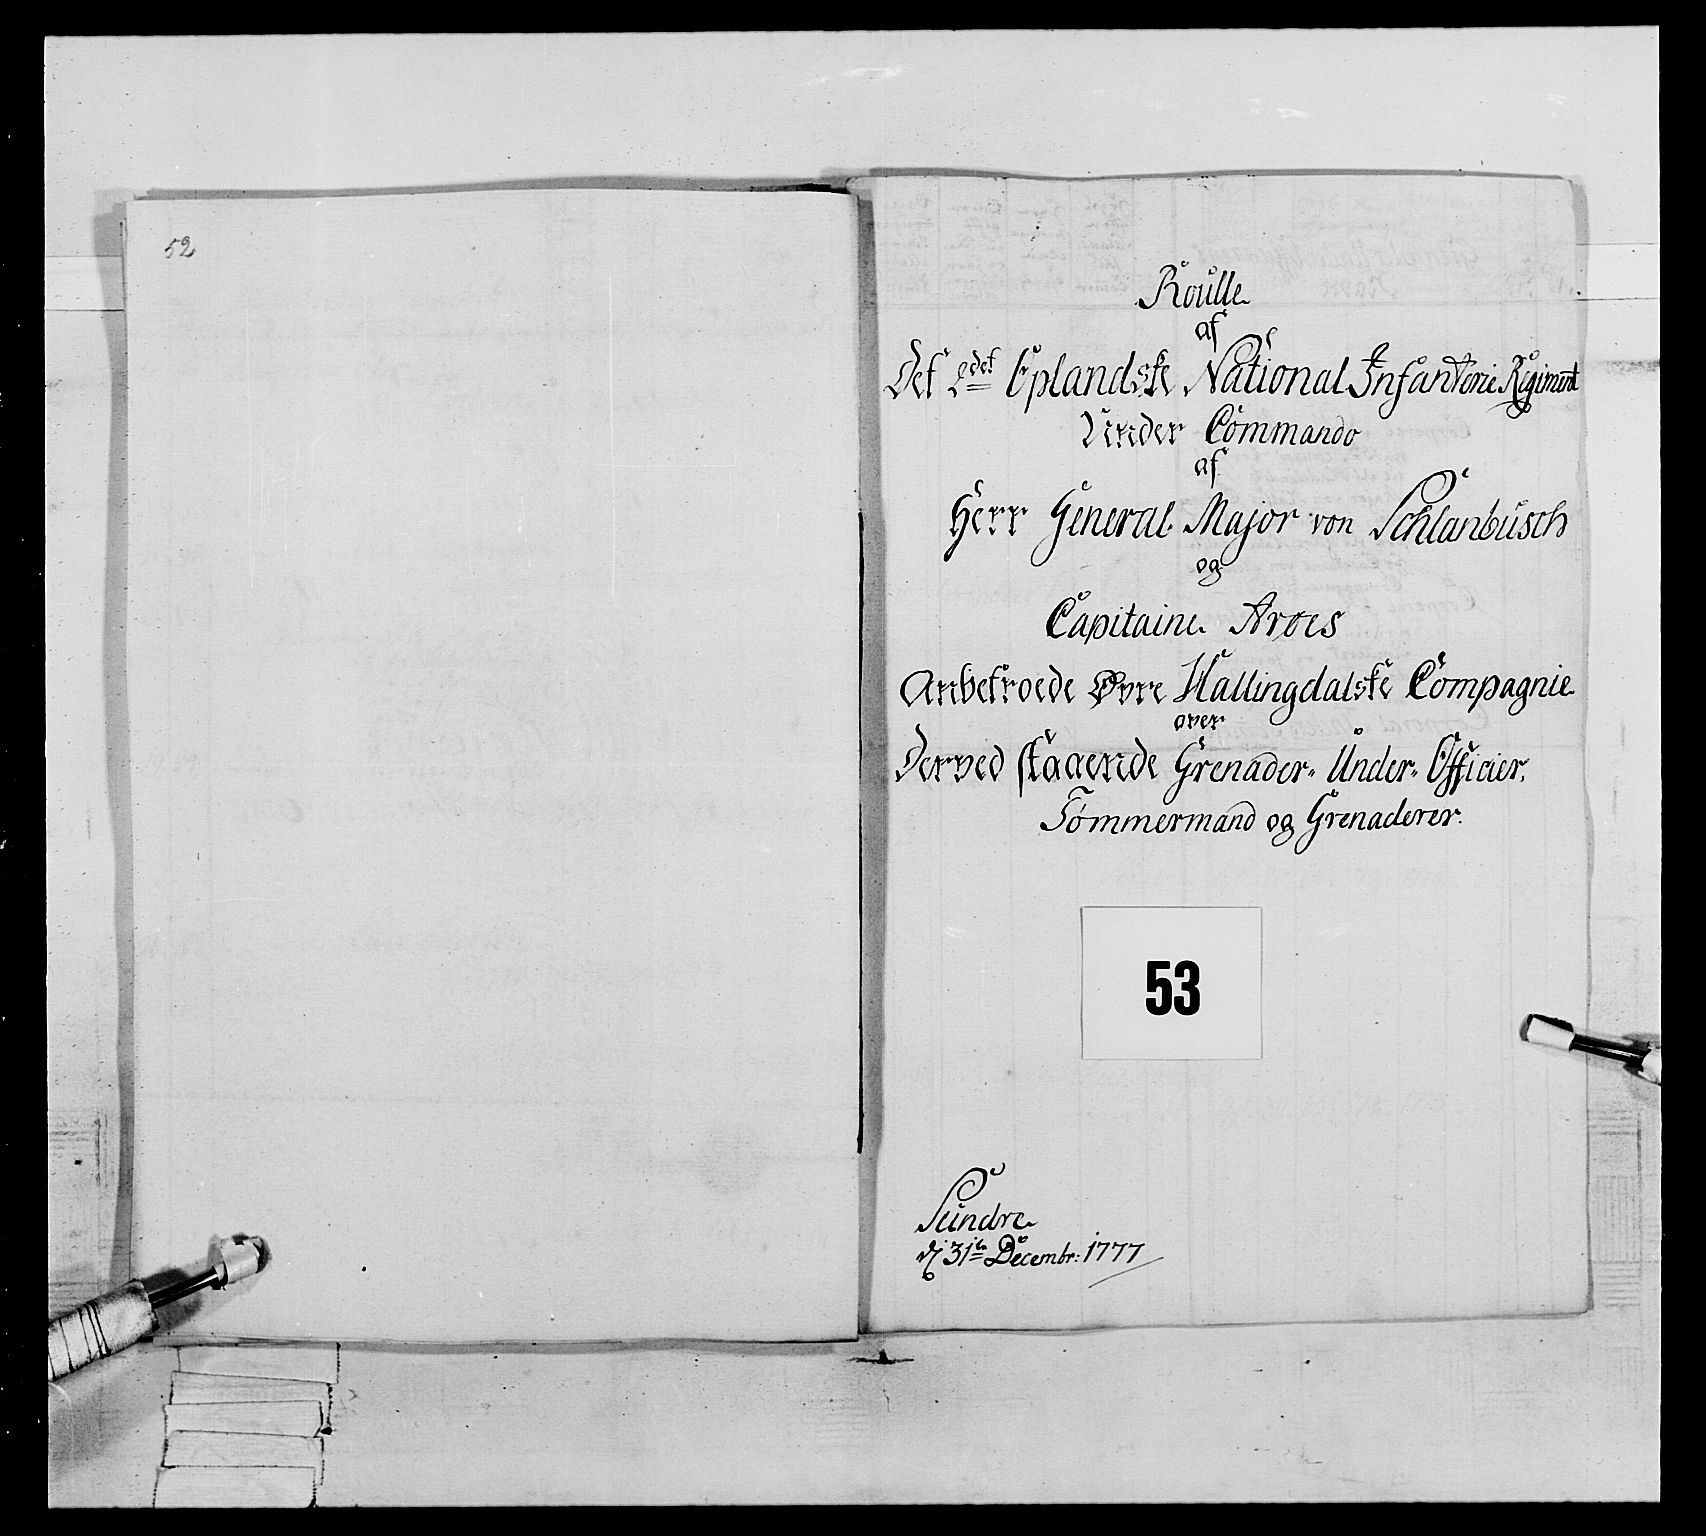 52
Roulle
af
Det 2det Oplandske National Infanterie Regiment
Under Commando
af
Herr General Major von Schlanbusch
og
Capitaine Aroes
Anbetroede Øvre Hallingdalske Compagnie
over
Derved staaende Grenader- Under- Officier,
Tømmermand og Grenaderer.
53
Sundre
d 31te Decembr: 1777